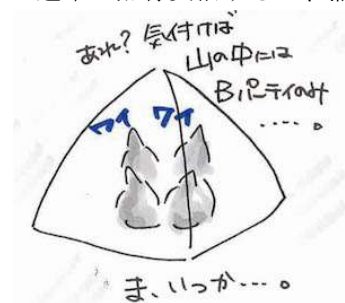 あれ? 気付けば
山の中には
Bパーティのみ
‥‥。
ワイ ワイ
ま、いっか‥‥。